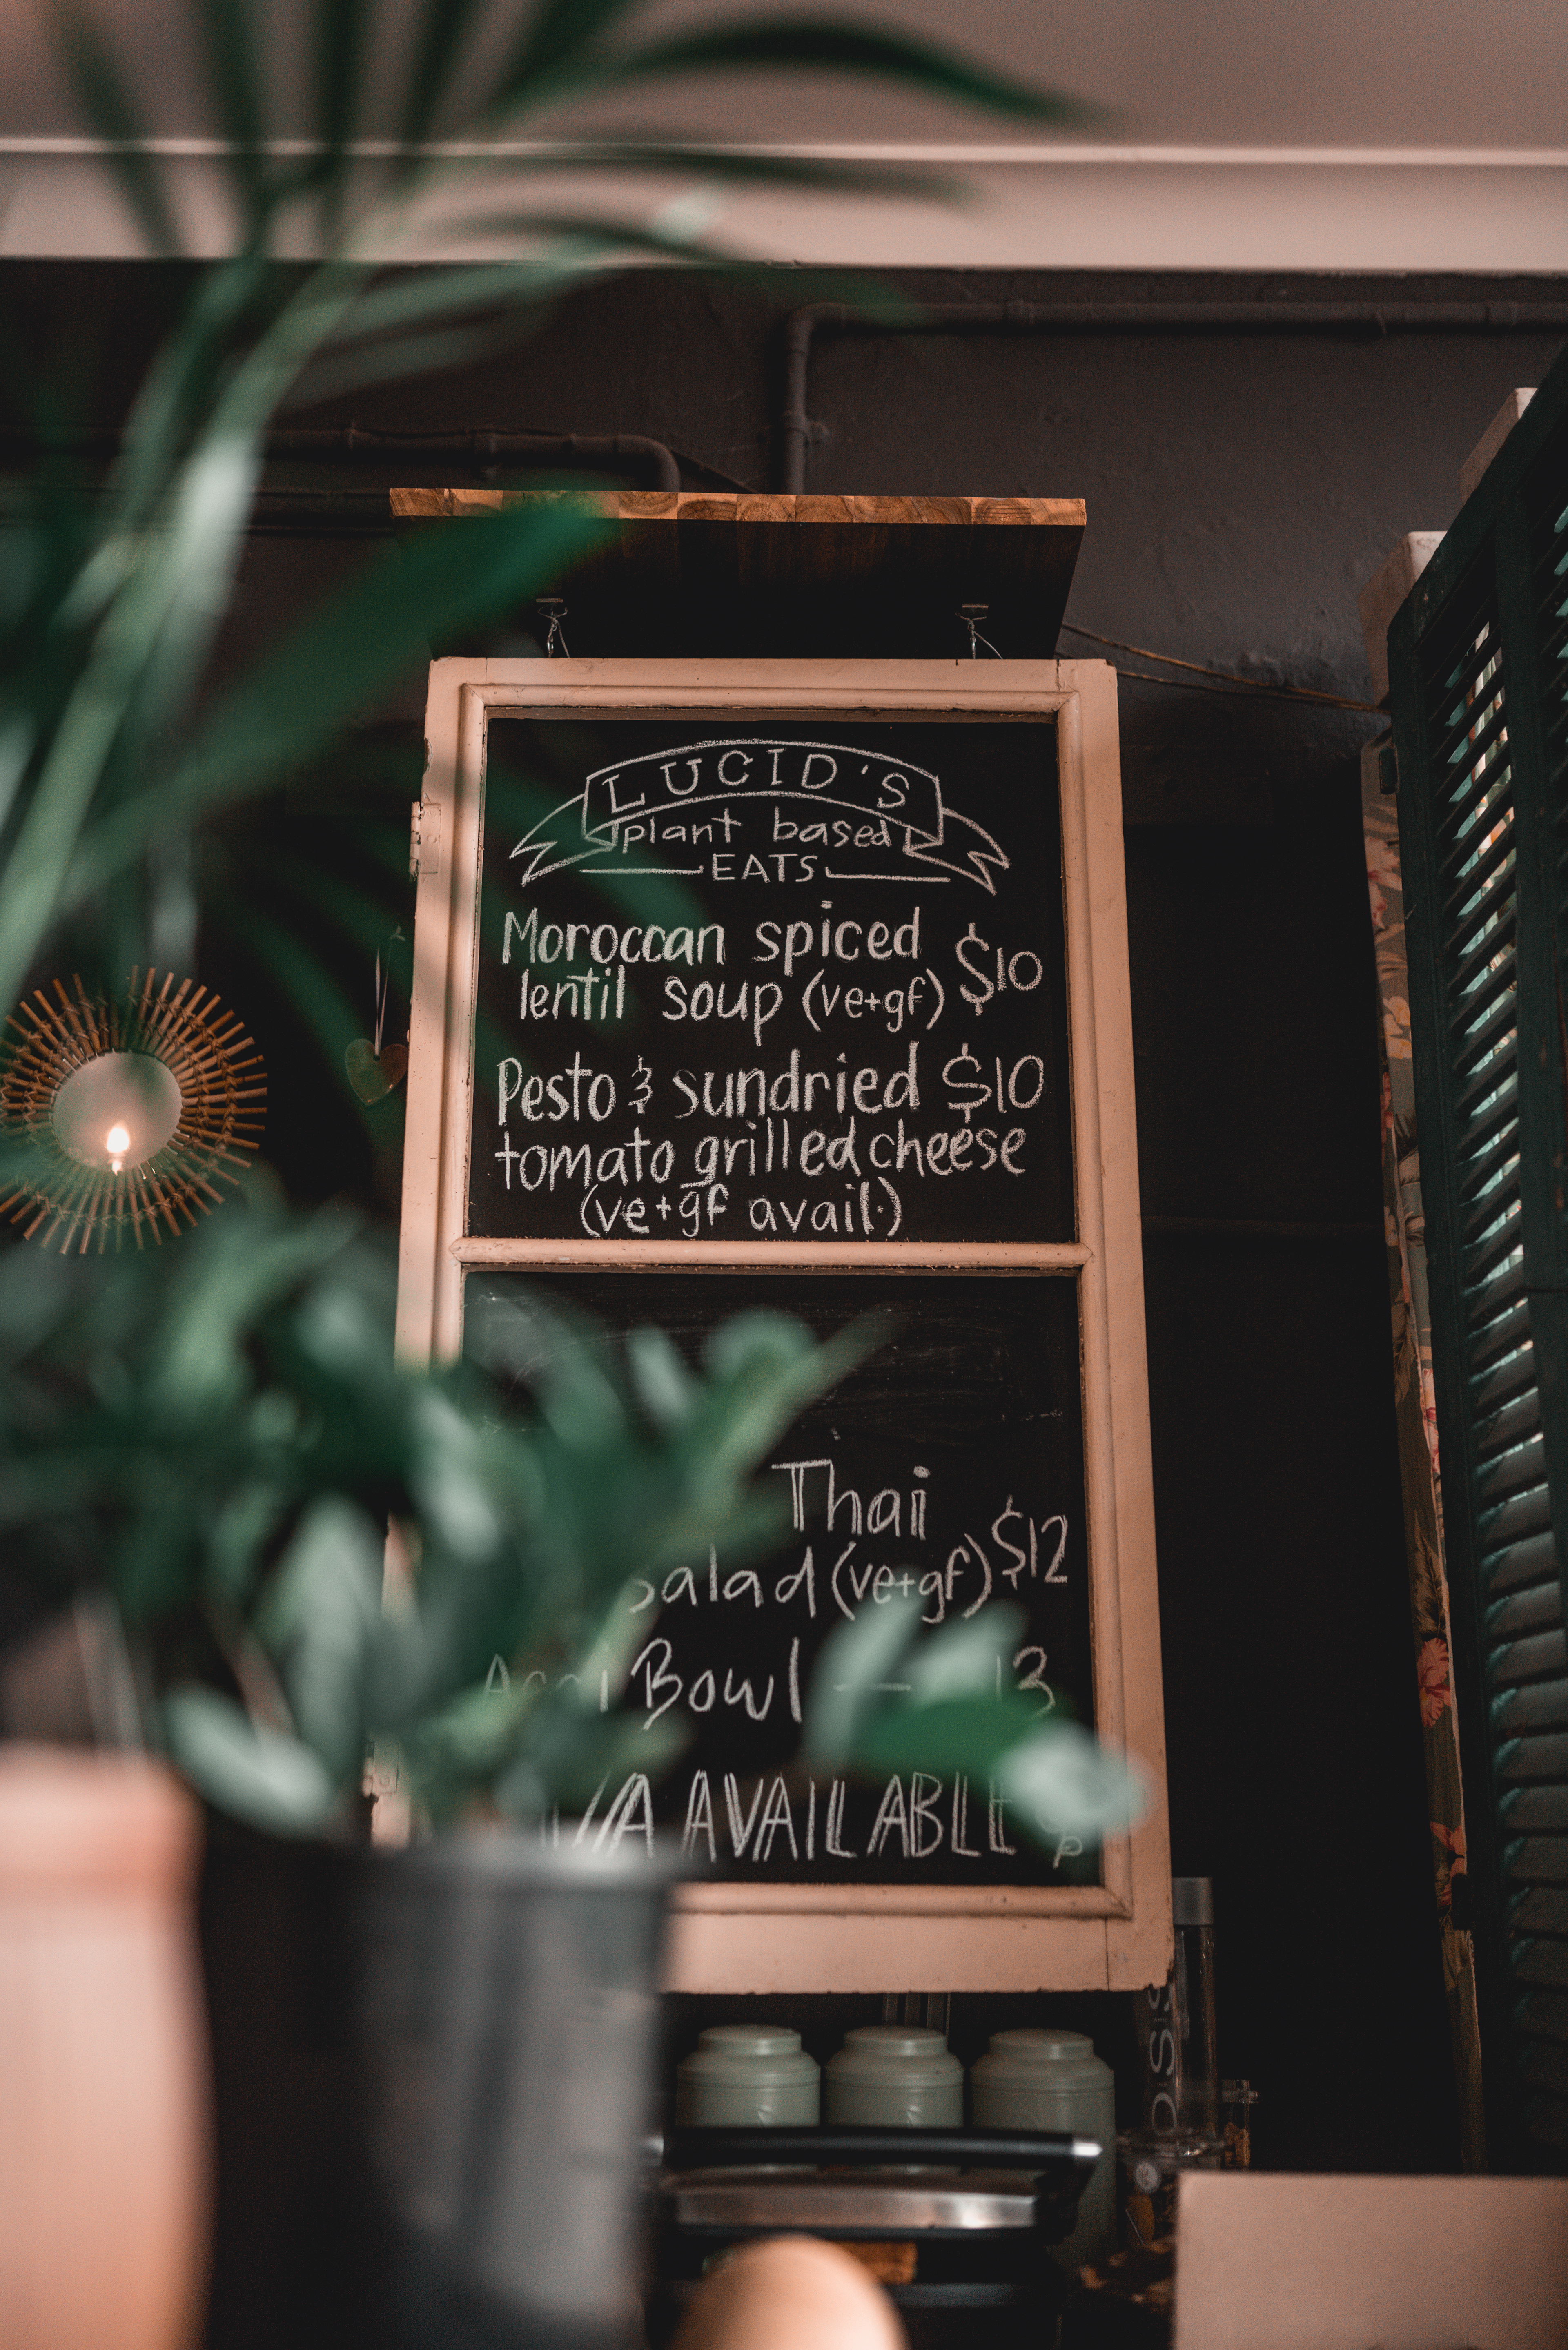 LUCID'S
plant based
EATS
Moroccan spiced
lentil soup (ve+gf) $10
Pesto & sundried $10
tomato grilled cheese
(ve+gf avail.)
Thai
salad (ve+gf) $12
Bowl — 13
AVAILABLE